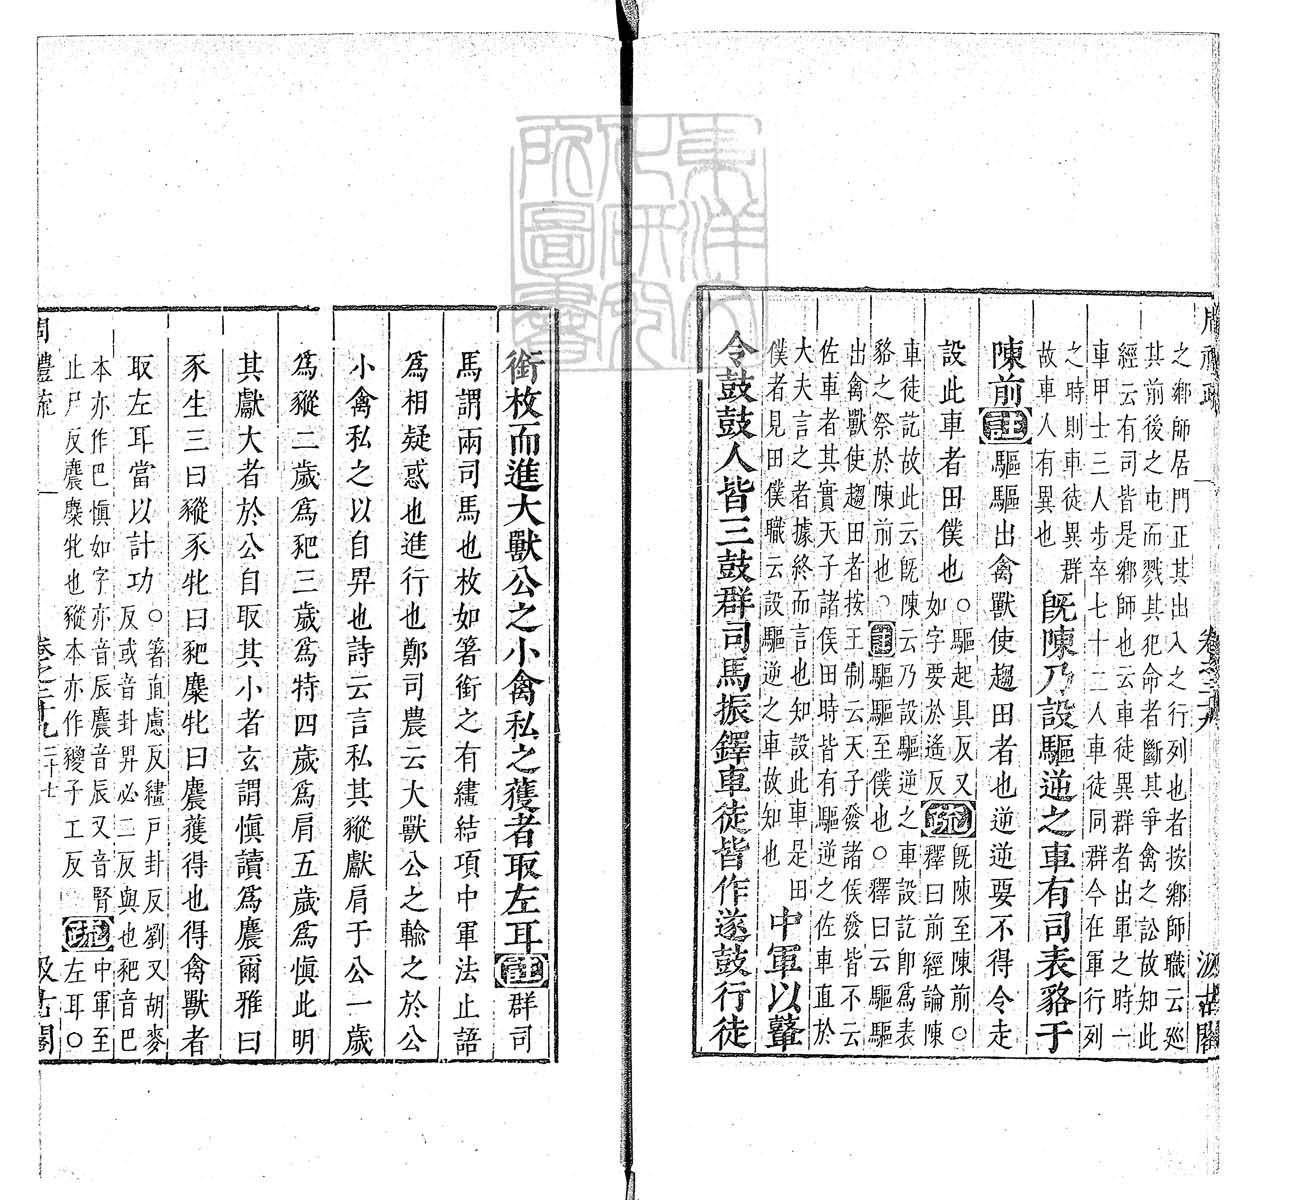 之鄉師居門正其出入之行列也者按鄉師職云巡
其前後之屯而戮其犯命者斷其爭禽之訟故知此
經云有司皆是鄉師也云車徒異群者出軍之時一
車甲士三人步卒七十二人車徒同群今在軍行列
之時則車徒異群
故車人有異也
既陳乃設驅逆之車有司表貉于
陳前註驅驅出禽獸使趨田者也逆逆要不得令走
設此車者田僕也
○驅起具反又
如字要於遙反
疏
既陳至陳前○
釋曰前經論陳
車徒訖故此云既陳云乃設驅逆之車設訖即為表
貉之祭於陳前也○註驅驅至僕也○釋曰云驅驅
出禽獸使趨田者按王制云天子發諸侯發皆不云
佐車者其實天子諸侯田時皆有驅逆之佐車直於
大夫言之者據終而言也知設此車是田
僕者見田僕職云設驅逆之車故知也
中軍以鼙
令鼓鼓人皆三鼓群司馬振鐸車徒皆作遂鼓行徒
銜枚而進大獸公之小禽私之獲者取左耳註群司
馬謂兩司馬也枚如箸銜之有繣結項中軍法止語
為相疑惑也進行也鄭司農云大獸公之輸之於公
小禽私之以自畀也詩云言私其豵獻肩于公一歲
為豵二歲為豝三歲為特四歲為肩五歲為慎此明
其獻大者於公自取其小者玄謂慎讀為麎爾雅曰
豕生三曰豵豕牝曰豝麋牝曰麎獲得也得禽獸者
取左耳當以計功
○箸直慮反繣戶卦反劉又胡麥
反或音卦畀必二反與也豝音巴
本亦作巴慎如字亦音辰麎音辰又音腎
止尸反麎麋牝也豵本亦作豵子工反
疏
中軍至
左耳○
周禮疏
卷之二十九
二十七
汲古閣